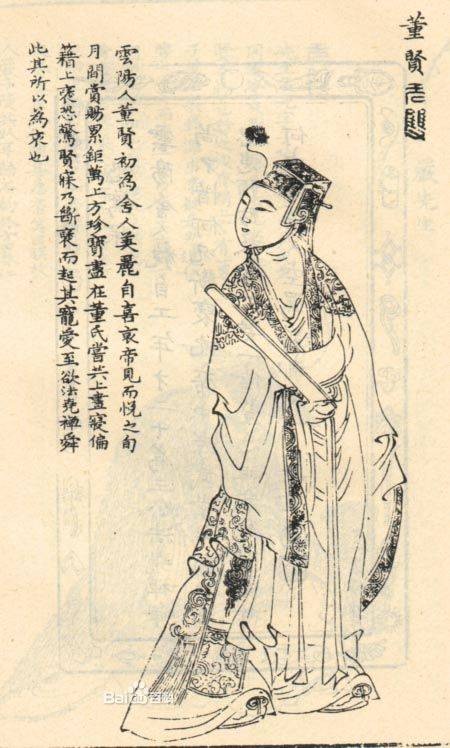 董賢
雲陽人董賢初為舍人美麗自喜哀帝見而悅之旬
月間賞賜累鉅萬上方珍寶盡在董氏嘗共上晝寢偏
籍上褏恐驚賢寐乃斷褏而起其寵愛至欲法堯禪舜
此其所以為哀也
Baidu百科